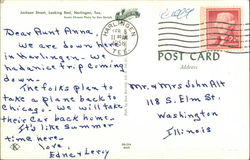 Jackson Street, Looking East, Harlingen, Tex.
HARLINGEN
TEX.
POST CARD
Address
Dear Aunt Anna,
We are down here
in Harlingen. We
had a nice trip coming
down.
The folks plan to
take a plane back to
Chicago. We will take
their car back home.
It's like Summer
time here.
Love,
Edna & Leroy
Mr. & Mrs John Alt
118 S. Elm St.
Washington
Illinois